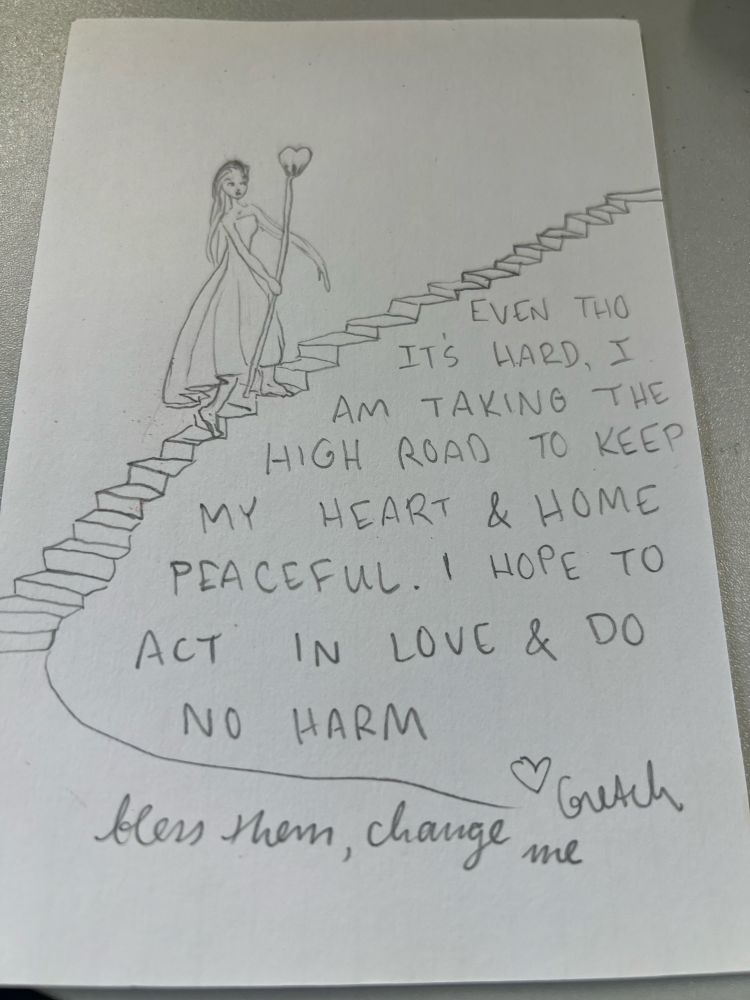 EVEN THO
IT'S HARD, I
AM TAKING THE
HIGH ROAD TO KEEP
MY HEART & HOME
PEACEFUL. I HOPE TO
ACT IN LOVE & DO
NO HARM
Gretch
bless them, change me